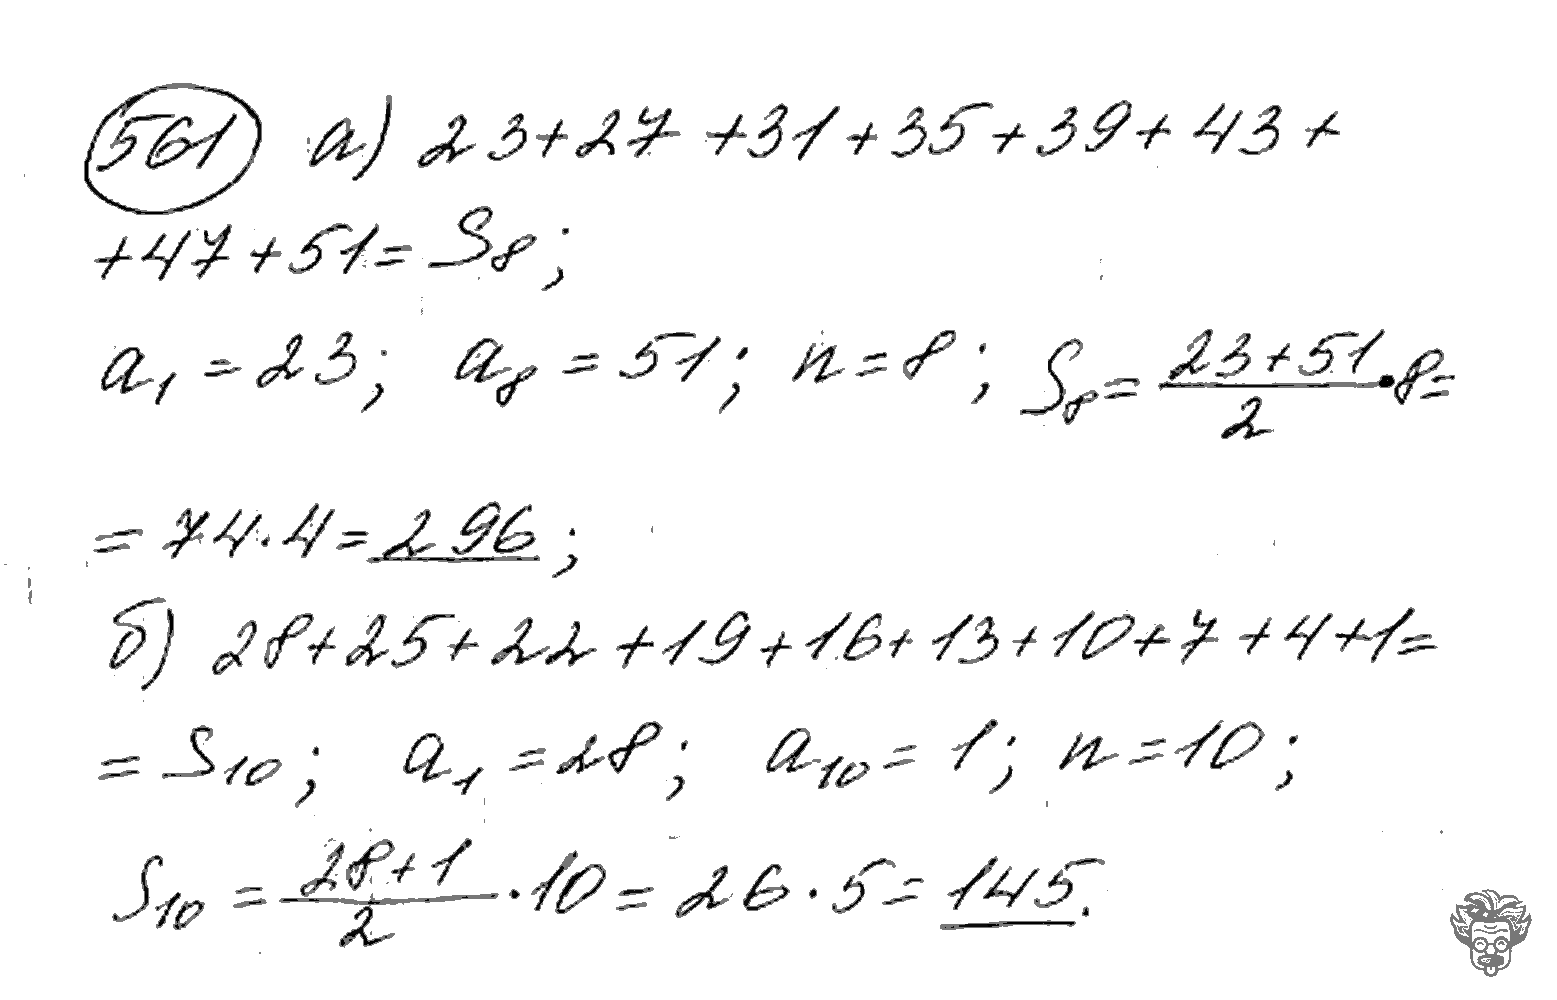 561 а) 23+27+31+35+39+43+
+47+51= S₈;
a₁=23; a₈=51; n=8; S₈= (23+51)/2 · 8=
= 74·4=296;
б) 28+25+22+19+16+13+10+7+4+1=
= S₁₀; a₁=28; a₁₀=1; n=10;
S₁₀ = (28+1)/2 · 10 = 26·5=145.